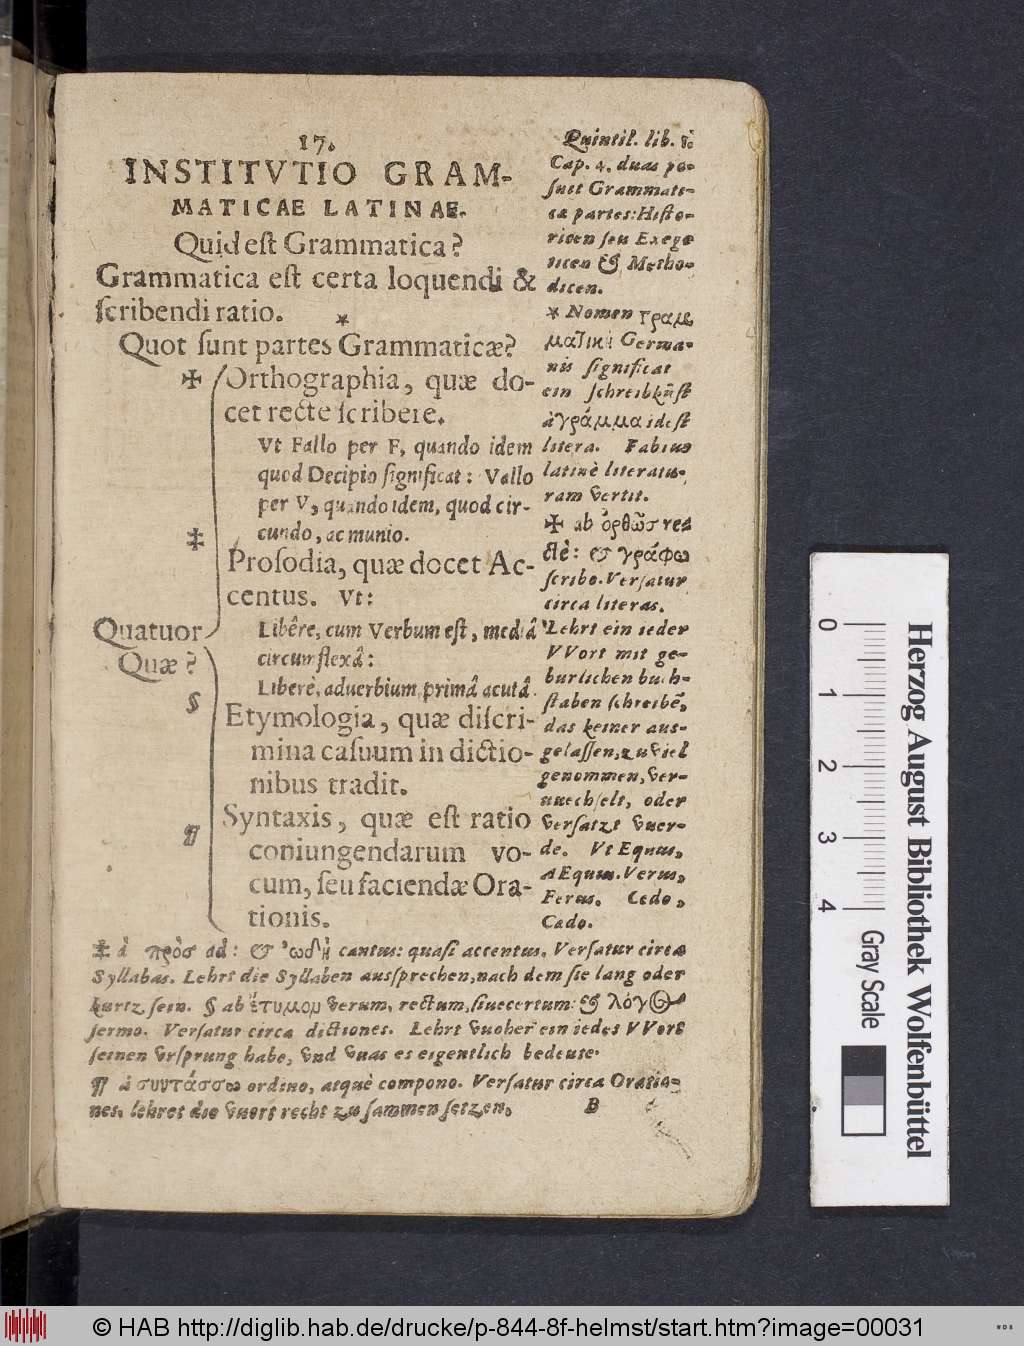 17.
INSTITVTIO GRAM-
MATICAE LATINAE.
Quid eſt Grammatica?
Grammatica eſt certa loquendi &
ſcribendi ratio.
*
Quot ſunt partes Grammaticæ?
✠ Orthographia, quæ do-
cet recte ſcribere.
Vt Fallo per F, quando idem
quod Decipio ſignificat: Vallo
per V, quando idem, quod cir-
cundo, ac munio.
‡
Proſodia, quæ docet Ac-
centus. Vt:
Quatuor
Quæ?
Libêre, cum Verbum eſt, mediâ
circumflexâ:
Liberè, aduerbium, primâ acutâ.
§
Etymologia, quæ diſcri-
mina caſuum in dictio-
nibus tradit.
¶
Syntaxis, quæ eſt ratio
coniungendarum vo-
cum, ſeu faciendæ Ora-
tionis.
Quintil. lib.
Cap. 4. duas po-
ſuit Grammati-
cæ partes: Hiſto-
ricen ſeu Exege
ticen & Metho-
dicen.
* Nomen γραμ-
ματικὴ Germa-
nis ſignificat
ein ſchreibkūſt
à γράμμα id eſt
litera. Fabius
latinè literatu-
ram vertit.
✠ ab ὀρθῶσ re-
ctè: & γράφω
ſcribo. Verſatur
circa literas.
Lehrt ein ieder
VVort mit ge-
burlichen buch-
ſtaben ſchreibē,
das keiner aus-
gelaſſen, zu viel
genommen, ver-
uuechſelt, oder
verſatzt vuer-
de. Vt Equus,
Æquus. Verus,
Ferus. Cedo,
Cado.
‡ à πρὸσ ad: & ᾠδὴ cantus: quaſi accentus. Verſatur circa
Syllabas. Lehrt die Syllaben ausſprechen, nach dem ſie lang oder
kurtz ſein. § ab ἔτυμον verum, rectum, ſiue certum: & λόγος
ſermo. Verſatur circa dictiones. Lehrt vuoher ein iedes VVort
ſeinen vrſprung habe, vnd vuas es eigentlich bedeute.
¶ à συντάσσω ordino, atquè compono. Verſatur circa Oratio-
nes. lehret die vuort recht zuſammen ſetzen.
B
0 1 2 3 4
Gray Scale
Herzog August Bibliothek Wolfenbüttel
© HAB http://diglib.hab.de/drucke/p-844-8f-helmst/start.htm?image=00031